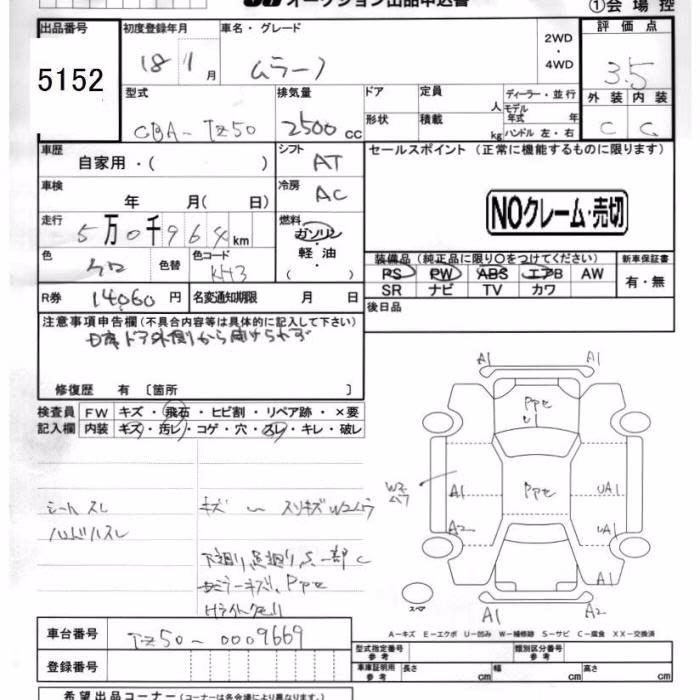 オークション出品申込書
①会場控
出品番号 初度登録年月 車名・グレード 2WD・4WD 評価点
5152 18/1月 ムラーノ 3.5
型式 排気量 ドア 定員 人 ディーラー・並行 外装 内装
CBA-TZ50 2500cc 形状 積載 kg モデル年式 年 ハンドル 左・右 C C
車歴 自家用・( ) シフト AT セールスポイント (正常に機能するものに限ります)
車検 年 月( 日) 冷房 AC
NOクレーム・売切
走行 5万0千964km 燃料 ガソリン・軽油・( )
色 クロ 色替 色コード KH3
装備品(純正品に限り○をつけてください) 新車保証書
PS PW ABS エアB AW 有・無
SR ナビ TV カワ
R券 14060円 名変通知期限 月 日
後日品
注意事項申告欄(不具合内容等は具体的に記入して下さい)
修復歴 有 〔箇所 〕
検査員記入欄 FW キズ・飛石・ヒビ割・リペア跡・×要
内装 キズ・汚レ・コゲ・穴・スレ・キレ・破レ
A1 A1
PPセ
U1
W2 ムラ A1 PPセ UA1
A2 UA1
A1
スペア
A1 A2
シートスレ
ハンドルスレ
キズ ー スリキズW2ムラ
下廻り、足廻り、点一部C
ミラーキズ、PPセ
Hライトクモリ
A-キズ E-エクボ U-凹み W-補修跡 S-サビ C-腐食 XX-交換済
車台番号 TZ50-0009669
型式指定番号 参考 類別区分番号 参考
登録番号
車庫証明用 参考 長さ cm 幅 cm 高さ cm
希望出品コーナー(コーナーは各会場により異なります。)